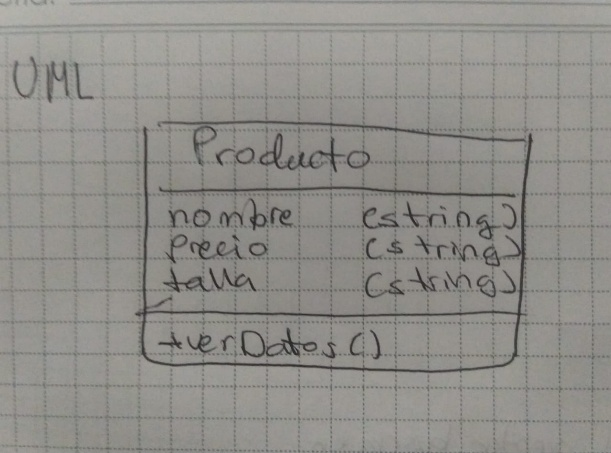 UML
Producto
nombre (string)
precio (string)
talla (string)
+verDatos()